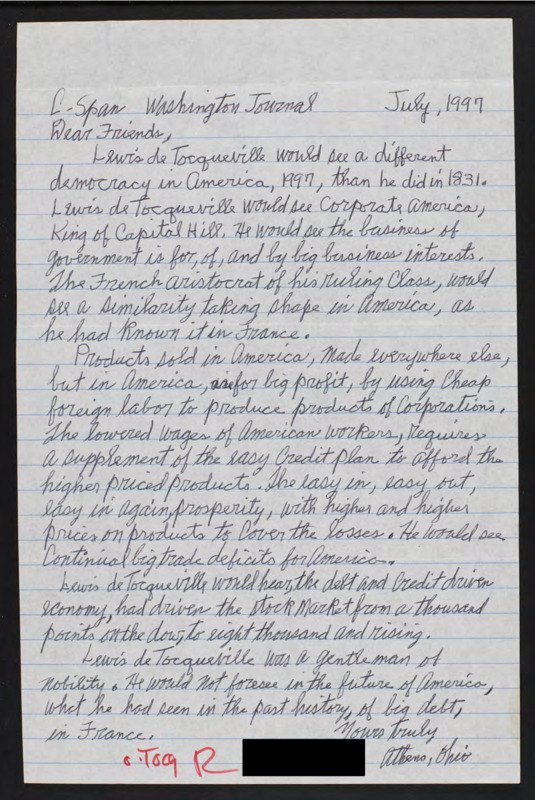 C-Span Washington Journal July, 1997
Dear Friends,
Lewis de Tocqueville would see a different
democracy in America, 1997, than he did in 1831.
Lewis de Tocqueville would see Corporate America,
King of Capital Hill. He would see the business of
government is for, of, and by big business interests.
The French aristocrat of his ruling Class, would
see a similarity taking shape in America, as
he had known it in France.
Products sold in America, made everywhere else,
but in America, are for big profit, by using Cheap
foreign labor to produce products of Corporations.
The lowered wages of American workers, requires
a supplement of the easy Credit plan to afford the
higher priced products. The easy in, easy out,
easy in again, prosperity, with higher and higher
prices on products to Cover the losses. He would see
Continual big trade deficits for America.
Lewis de Tocqueville would hear, the debt and Credit driven
economy, had driven the stock Market from a thousand
points on the dow, to eight thousand and rising.
Lewis de Tocqueville was a gentleman of
nobility. He would not foresee in the future of America,
what he had seen in the past history, of big debt,
in France. Yours truly
Athens, Ohio
c. Toq R